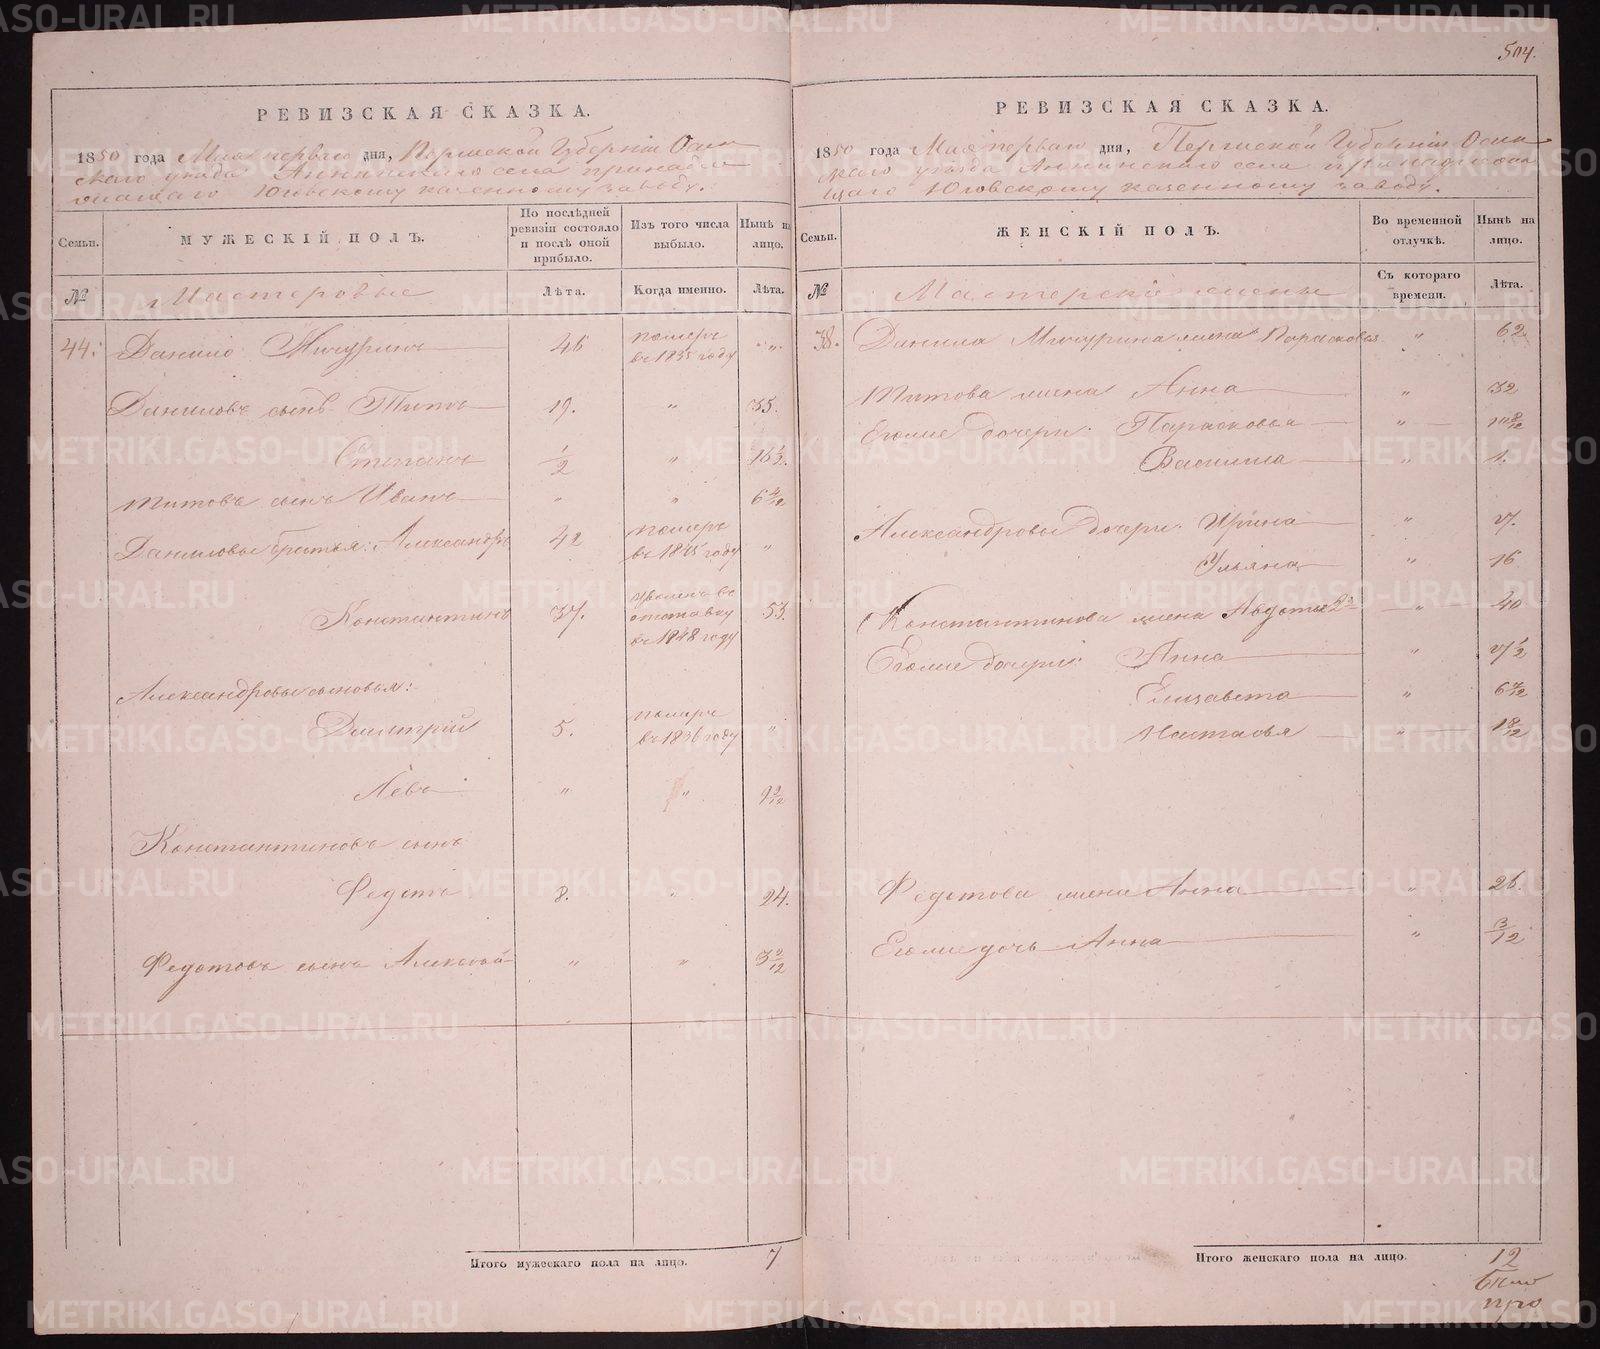 504.
РЕВИЗСКАЯ СКАЗКА.
1850 года Мая перваго дня, Пермской Губерніи Осин
скаго уезда Аннинскаго села принадле
жащаго Юговскому казенному заводу.
Семьи.
МУЖЕСКІЙ ПОЛЪ.
По послѣдней ревизіи состояло и послѣ оной прибыло.
Изъ того числа выбыло.
Нынѣ на лицо.
№
Мастеровые
Лѣта.
Когда именно.
Лѣта.
44. Данило Мичуринъ 46 померъ въ 1835 году „
Даниловъ сынъ Титъ 19. „ 35.
Степанъ 1/2 „ 16 1/2.
Титовъ сынъ Иванъ „ „ 6
Даниловы братья: Александръ 42 померъ въ 1845 году „
Константинъ 37. уволенъ въ отставку въ 1848 году 53.
Александровы сыновья:
Дмитрій 5. померъ въ 1836 году „
Левъ „ „ 9 9/12
Константиновъ сынъ
Федотъ 8. „ 24.
Федотовъ сынъ Алексѣй „ „ 3
Итого мужескаго пола на лицо. 7
РЕВИЗСКАЯ СКАЗКА.
1850 года Мая перваго дня, Пермской Губерніи Осин
скаго уезда Аннинскаго села принадлежа
щаго Юговскому казенному заводу.
Семьи.
ЖЕНСКІЙ ПОЛЪ.
Во временной отлучкѣ.
Нынѣ на лицо.
№
Мастерскіе жены
Съ котораго времени.
Лѣта.
38. Данила Мичурина жена Парасковья „ 62.
Титова жена Анна „ 32
Егоже дочери: Парасковья „
Василиса „ 1.
Александровы дочери: Ирина „
Ульяна „ 16
Константинова жена Авдотья 2я „ 40
Егоже дочери: Анна „
Елизавета „ 6
Настасья „ 1 8/12
Федотова жена Анна „ 26.
Егоже дочь Анна „ 3/12
Итого женскаго пола на лицо. 12
METRIKI.GASO-URAL.RU